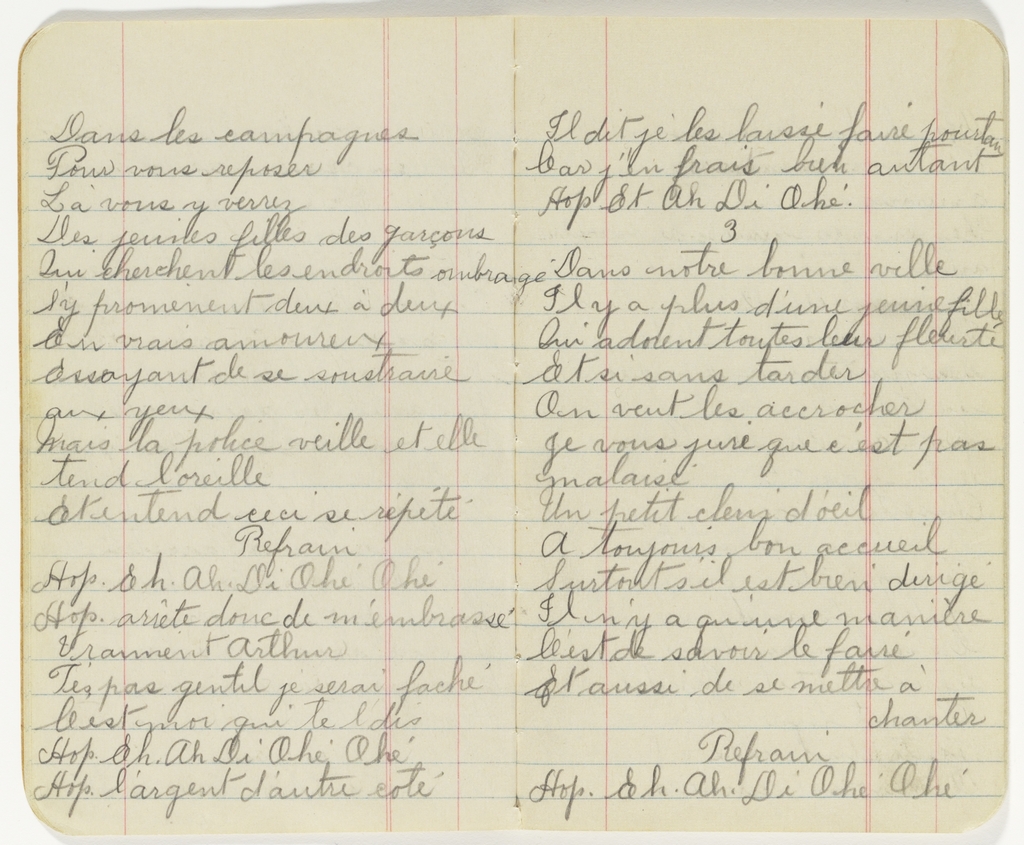 Dans les campagnes
Pour vous reposer
La vous y verrez
Des jeunes filles des garçons
Qui cherchent les endroits ombragé
s'y promènent deux à deux
En vrais amoureux
Essayant de se soustraire
aux yeux
Mais la police veille et elle
tend l'oreille
Et entend ceci se répété
Refrain
Hop. Eh. Ah. Di Ohé Ohé
Hop. arrète donc de m'embrassé
Vraiment Arthur
T'és pas gentil je serai faché
C'est moi qui te l'dis
Hop. Eh. Ah Di Ohé Ohé
Hop. l'argent d'autre coté
Il dit je les laissé faire pourtan
Car j'en frais bien autant
Hop Et Ah Di Ohé.
3
Dans notre bonne ville
Il y a plus d'une jeune fille
Qui adorent toutes leur fleurté
Et si sans tarder
On veut les accrocher
Je vous jure que c'est pas
malaisé
Un petit clein d'oeil
A toujours bon accueil
Surtout s'il est bien dirigé
Il n'y a qu'une manière
C'est de savoir le faire
Et aussi de se mettre à
chanter
Refrain
Hop. Eh. Ah. Di Ohé Ohé